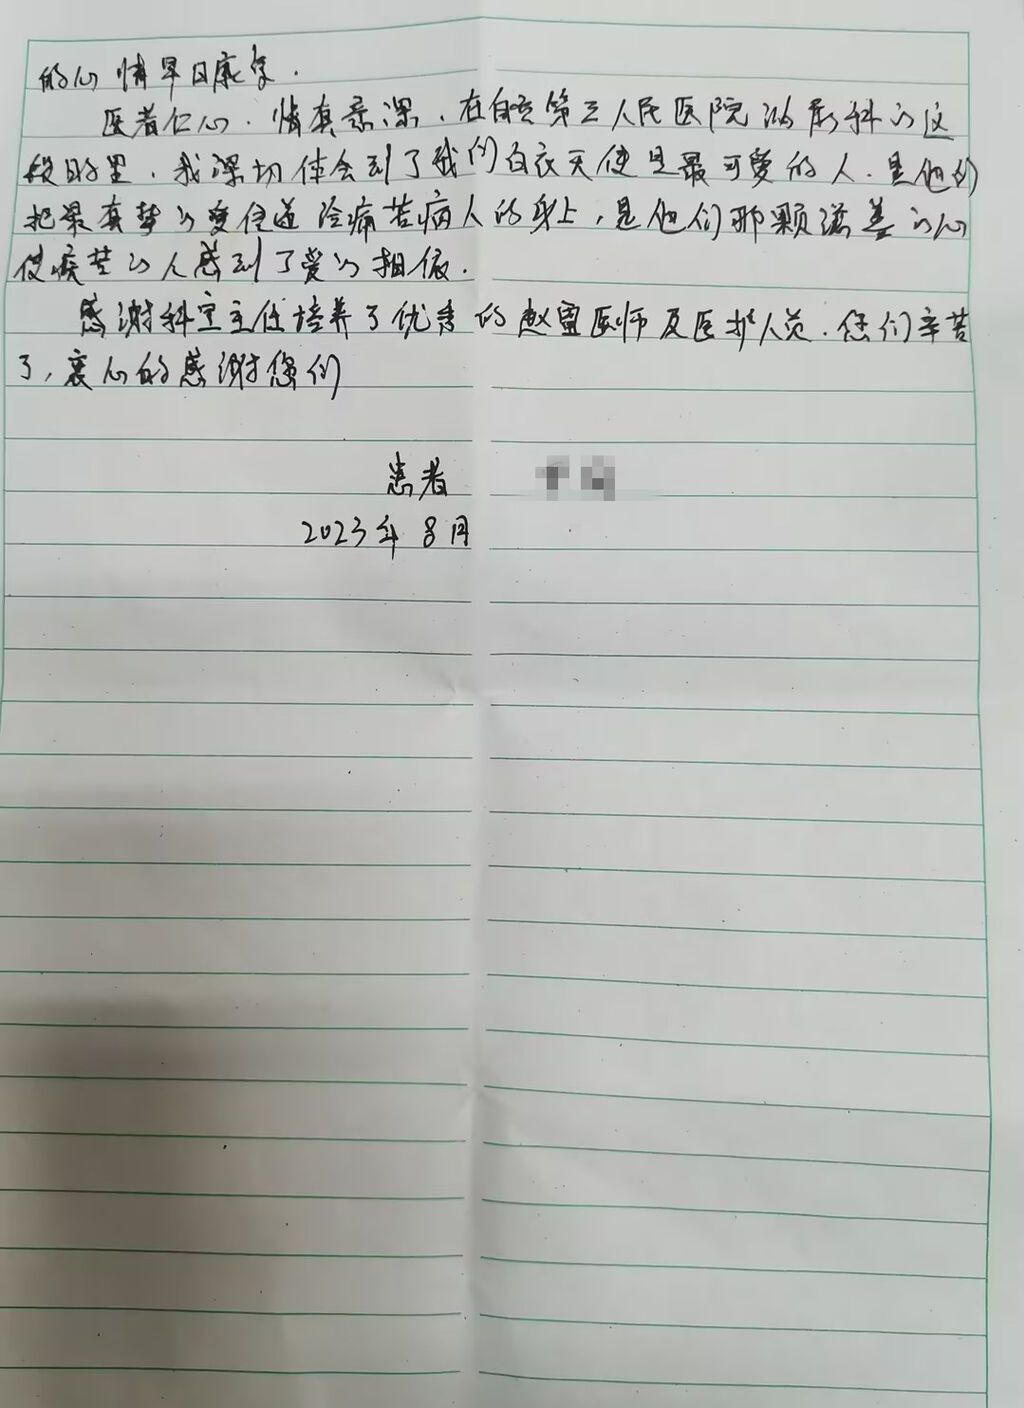 的心情早日康复.
医者仁心.情真意深.在自贡第三人民医院泌尿科的这
段日的里.我深切体会到了我们白衣天使是最可爱的人.是他们
把最真挚的爱传递给痛苦病人的身上,是他们那颗滋善的心
使痰苦的人感到了爱的相依.
感谢科室主任培养了优秀的赵蛋医师及医护人员.您们辛苦
了,衷心的感谢您们
患者
2023年8月